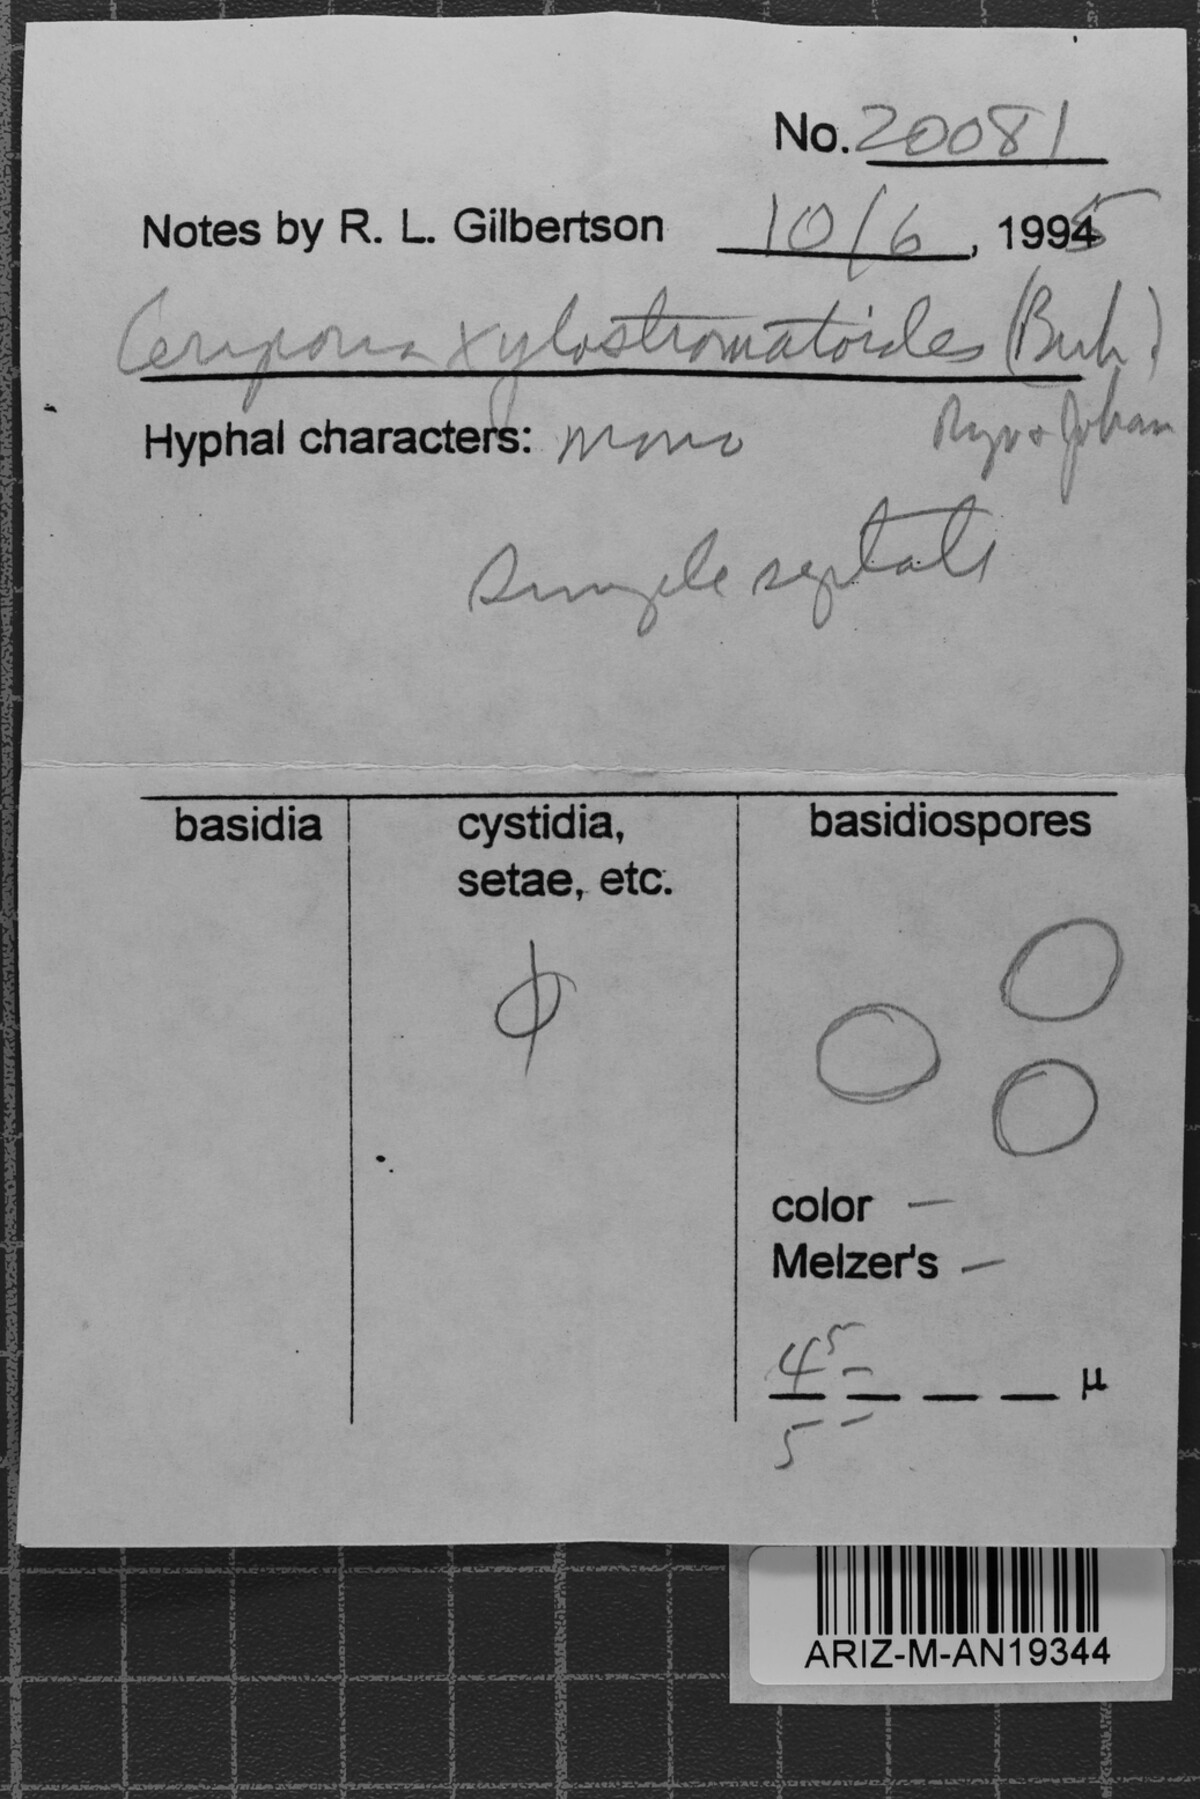 No. 20081
Notes by R. L. Gilbertson 10/6, 1995
Ceriporia xylostromatoides (Berk.)
Ryv & Johan
Hyphal characters: mono
simple septate
basidia
cystidia,
setae, etc.
basidiospores
φ
color —
Melzer's —
4⁵ –
_ _ _ _ µ
5 –
ARIZ-M-AN19344